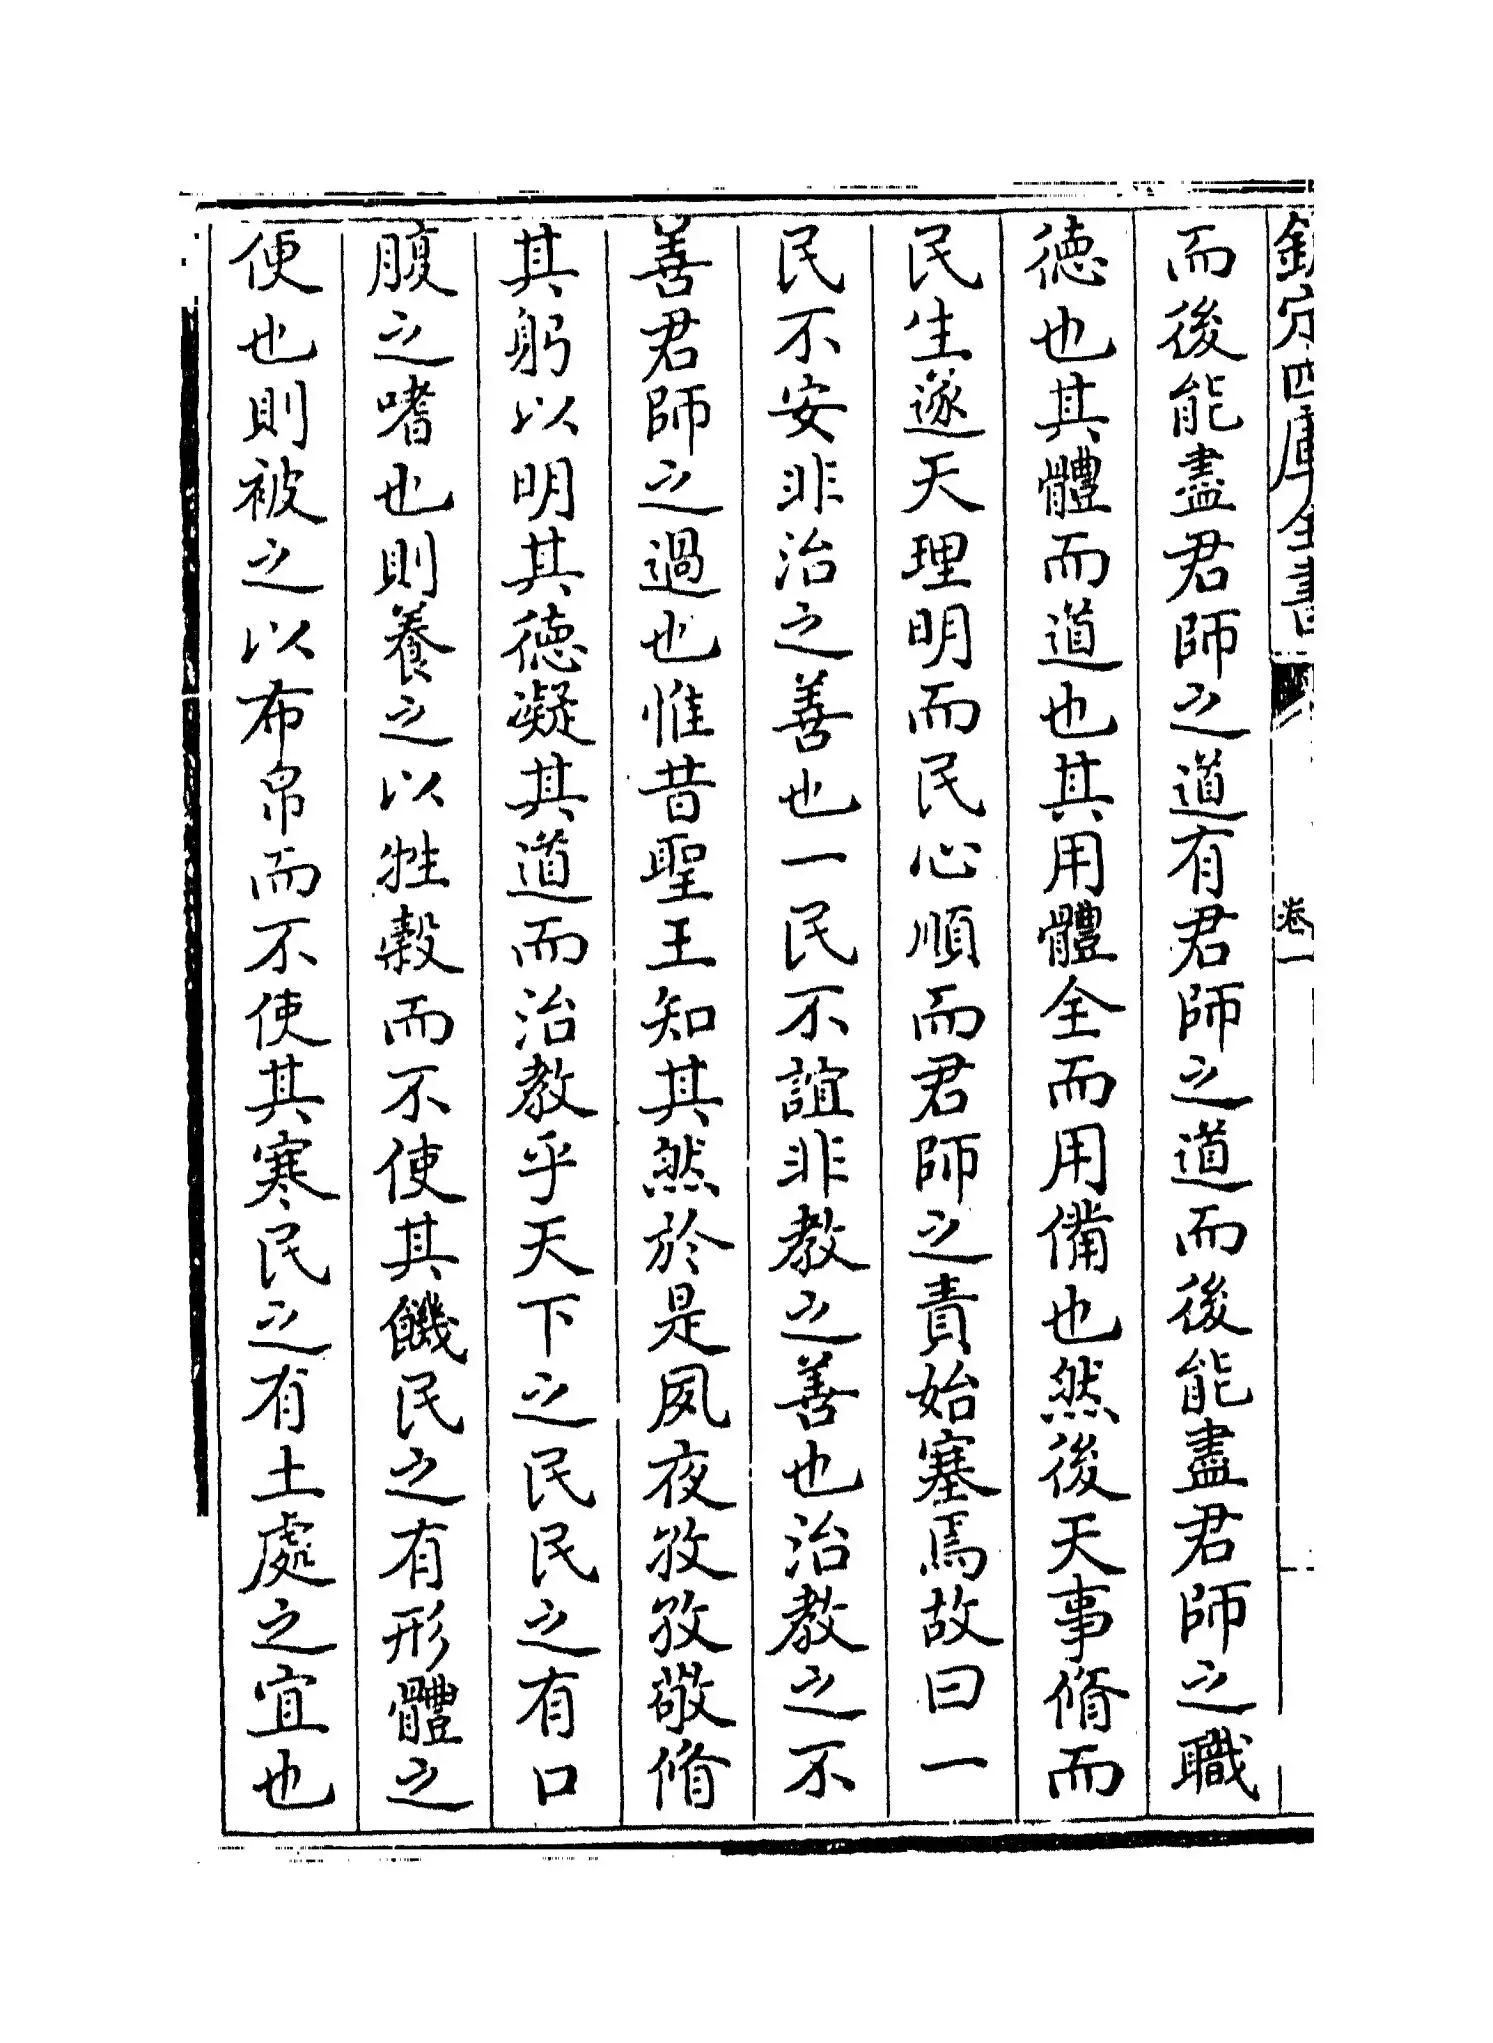 欽定四庫全書
卷一
而後能盡君師之道有君師之道而後能盡君師之職
德也其體而道也其用體全而用備也然後天事脩而
民生遂天理明而民心順而君師之責始塞焉故曰一
民不安非治之善也一民不誼非教之善也治教之不
善君師之過也惟昔聖王知其然於是夙夜孜孜敬脩
其躬以明其德凝其道而治教乎天下之民民之有口
腹之嗜也則養之以牲穀而不使其饑民之有形體之
便也則被之以布帛而不使其寒民之有土處之宜也